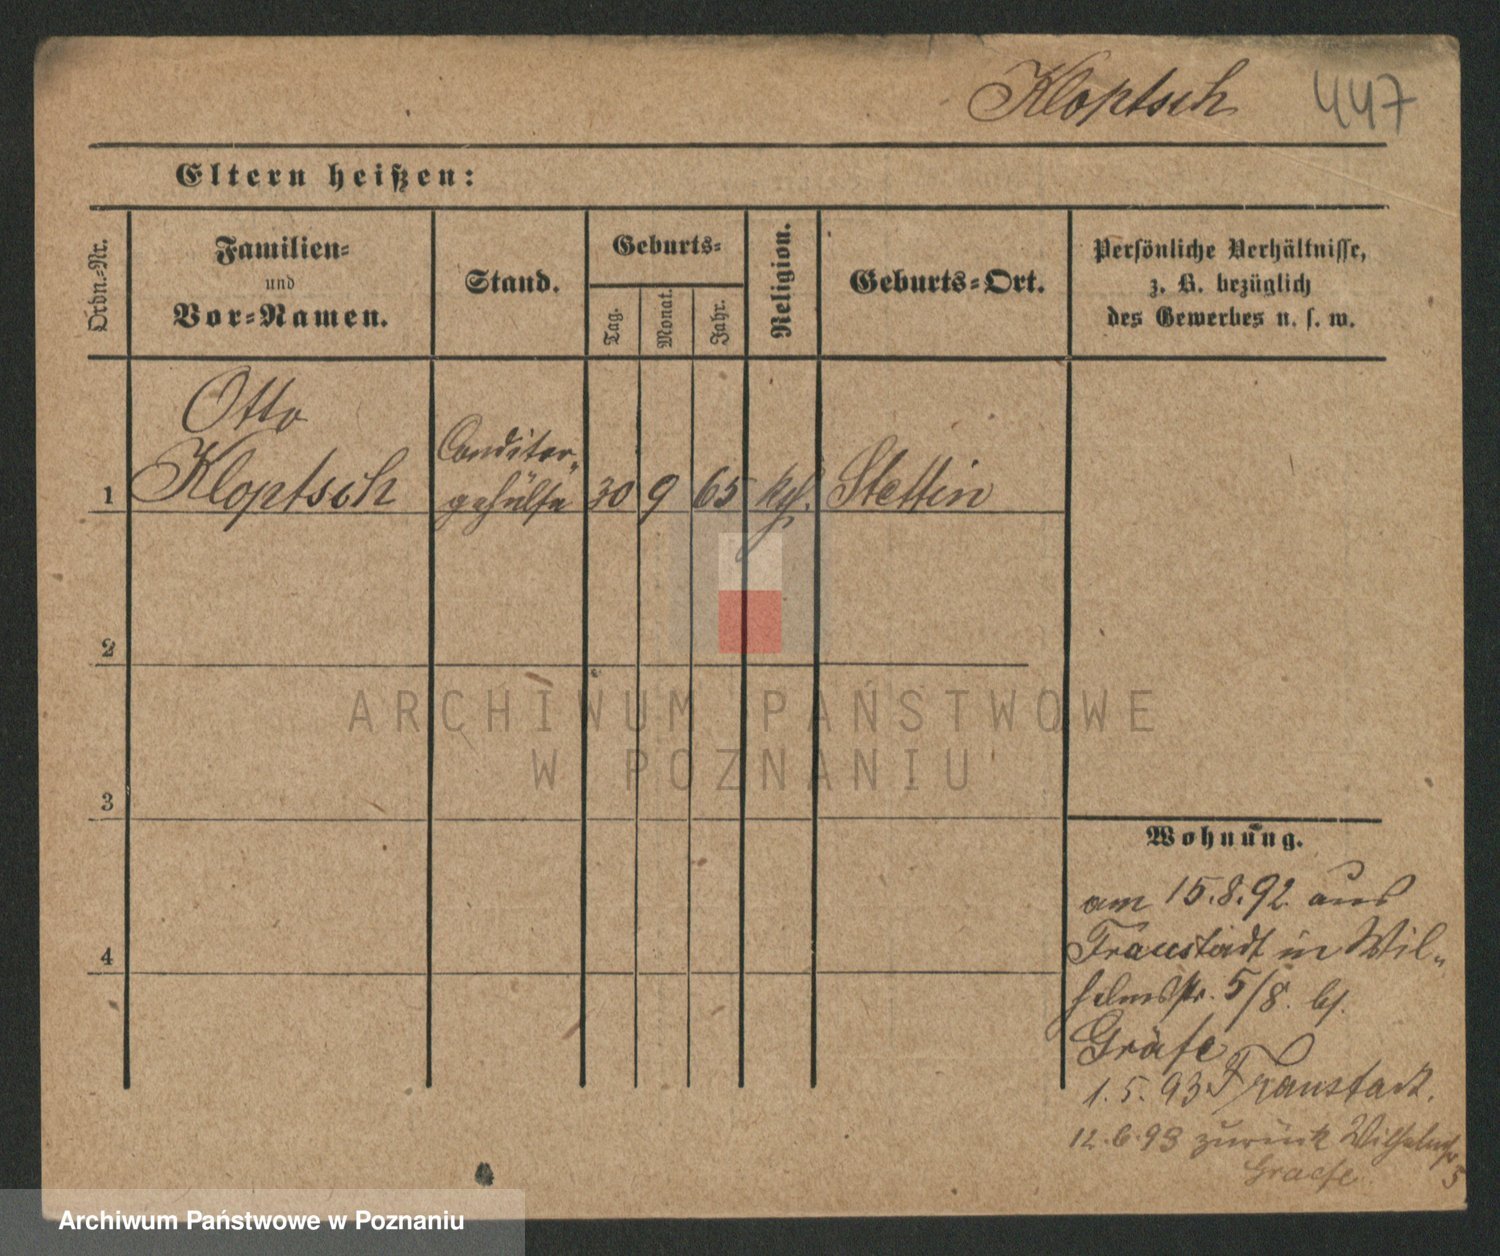 Kloptsch 447
Eltern heißen:
Ordn.-Nr.
Familien-
und
Vor-Namen.
Stand.
Geburts-
Tag.
Monat.
Jahr.
Religion.
Geburts-Ort.
Persönliche Verhältnisse,
z. B. bezüglich
des Gewerbes u. s. w.
Otto
1 Kloptsch
Conditor-
gehülfe
30 9 65 Stettin
2
3
4
Wohnung.
am 15.8.92. aus
Fraustadt in Wil-
helmstr. 5/8. bf.
Gräfe
1.5.93 Fraustadt.
12.6.93 zurück Wilhelmstr 5
Graefe
ARCHIWUM PAŃSTWOWE
W POZNANIU
Archiwum Państwowe w Poznaniu